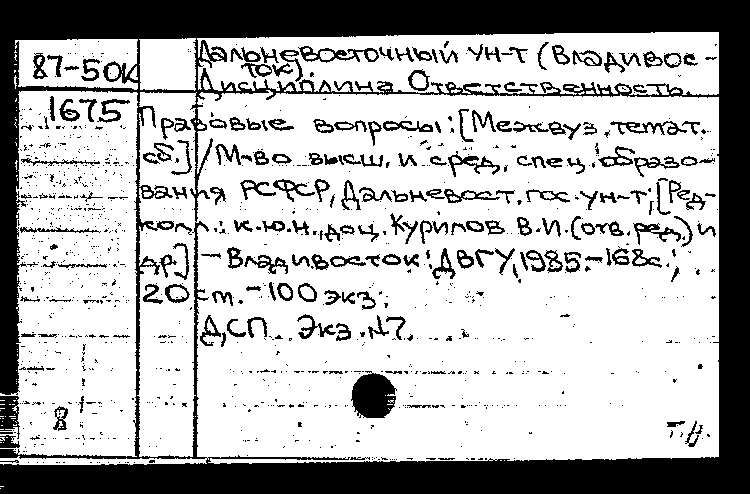 87-50К
1675
Дальневосточный ун-т (Владивос-
ток).
Дисциплина. Ответственность.
Правовые вопросы: [Межвуз. темат.
сб.] / М-во высш. и сред. спец. образо-
вания РСФСР, Дальневост. гос. ун-т; [Ред-
колл.: к.ю.н., доц. Курилов В.И. (отв. ред.) и
др.] - Владивосток: ДВГУ, 1985. - 168с.;
20 см. - 100 экз.
ДСП Экз. №7.
8
Т.Н.